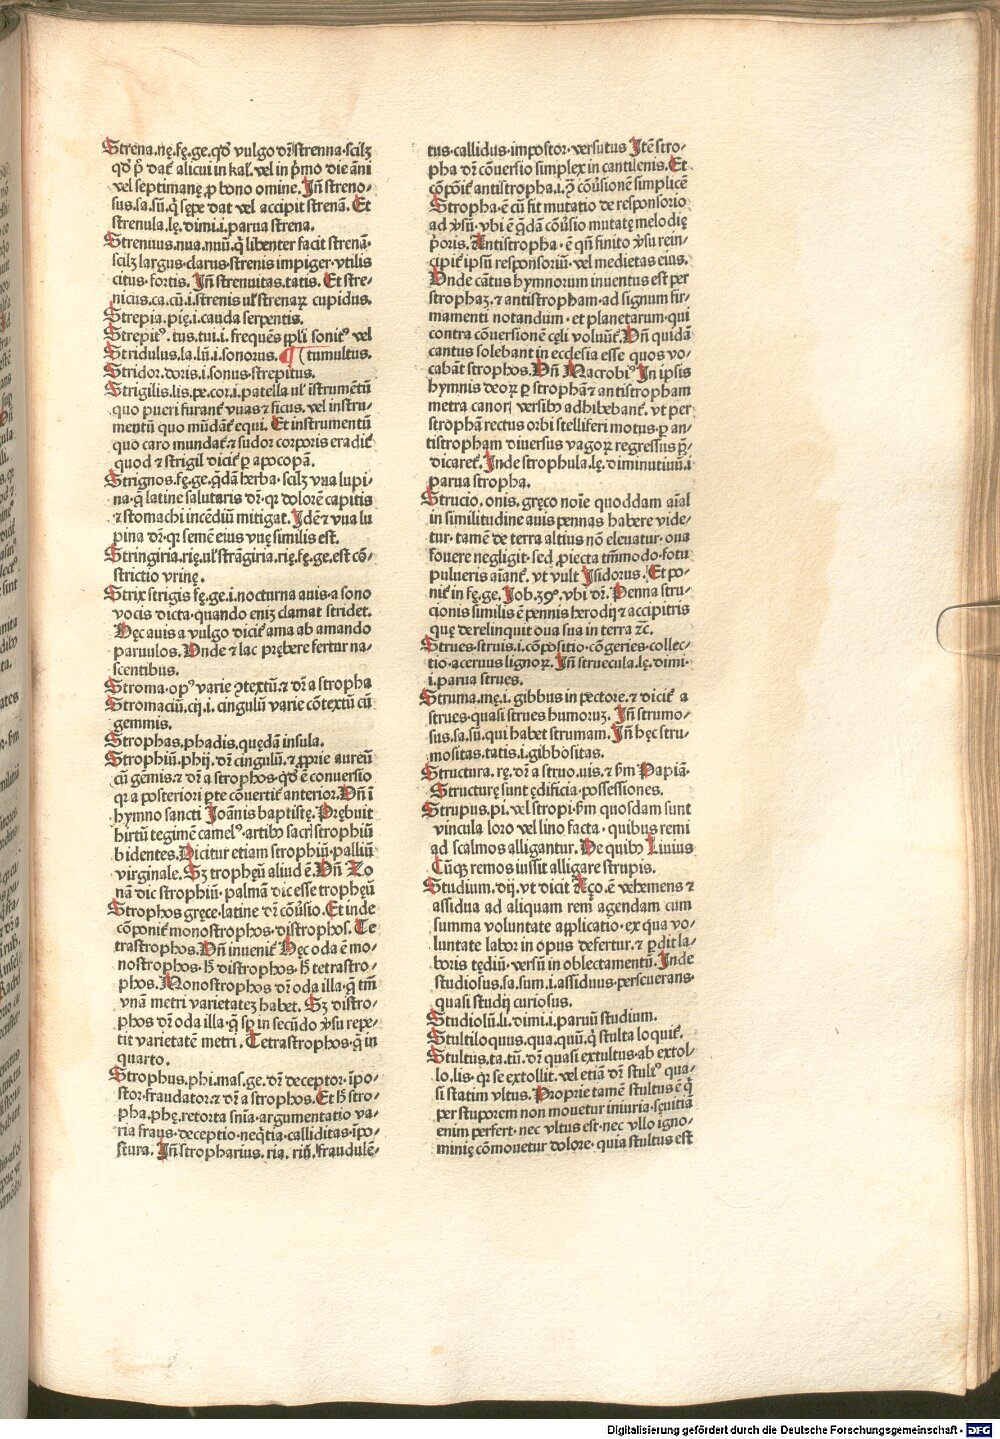 Strena.nę.fę.ge.qđ vulgo dr̄ strenna.scilꝫ
qđ p̄ dat᷑ alicui in kal. vel in pͥmo die āni
vel septimanę ꝓ bono omine. Jn̄ streno⸗
sus.sa.sū. q̄ sępe dat vel accipit strenā. Et
strenula.lę.dimi.i.parua strena.
Strenuus.nua.nuū.q̄ libenter facit strenā.
scilꝫ largus.clarus.strenis impiger.vtilis
citus.fortis. Jn̄ strenuitas.tatis. Et stre⸗
nicus.ca.cū.i.strenis ul̓ strenaꝝ cupidus.
Strepia.pię.i.cauda serpentis.
Strepitꝰ.tus.tui.i.frequēs ppl̓i sonitꝰ vel
Stridulus.la.lū.i.sonorus. ¶ ( tumultus.
Stridor.doris.i.sonus.strepitus.
Strigilis.lis.pe.cor.i.patella ul̓ īstrumētū
quo pueri furant᷑ vuas ⁊ ficus. vel instru⸗
mentū quo mūdant᷑ equi. Et instrumentū
quo caro mundat᷑.⁊ sudor corporis eradit᷑
quod ⁊ strigil dicit᷑ ꝑ apocopā.
Strignos.fę.ge.q̄dā herba.scilꝫ vua lupi⸗
na.q̄ latine salutaris dr̄.qꝛ dolorē capitis
⁊ stomachi incēdiū mitigat. Jdē ⁊ vua lu
pina dr̄.qꝛ semē eius vuę similis est.
Stringiria.rię.ul̓ strāgiria.rię.fę.ge.est cō⸗
strictio vrinę.
Strix strigis fę.ge.i.nocturna auis.a sono
vocis dicta.quando eniꝫ clamat stridet.
Hęc auis a vulgo dicit᷑ ama ab amando
paruulos. Vnde ⁊ lac prębere fertur na⸗
scentibus.
Stroma.opꝰ varie ꝯtextū.⁊ dr̄ a stropha
Stromaciū.cij.i. cingulū varie cōtextū cū
gemmis.
Strophas.phadis.quędā insula.
Strophiū.phij. dr̄ cingulū.⁊ ꝓprie aureū
cū gēmis.⁊ dr̄ a strophos.qđ ē conuersio
qꝛ a posteriori ꝑte cōuertit᷑ anterior. Vn̄ ī
hymno sancti Joānis baptistę. Prębuit
hirtū tegimē camelꝰ.artibꝰ sacrꝭ strophiū
bidentes. Dicitur etiam strophiū.palliū
virginale. Sꝫ trophęū aliud ē. Vn̄ Zo
nā dic strophiū.palmā dic esse trophęū
Strophos gręce.latine dr̄ cōūsio. Et inde
cōponit᷑ monostrophos.distrophos. Te
trastrophos. Vn̄ inuenit᷑ Hęc oda ē mo⸗
nostrophos. h̄ distrophos. h̄ tetrastro⸗
phos. Monostrophos dr̄ oda illa.q̄ tm̄
vnā metri varietateꝫ habet. Sꝫ distro⸗
phos dr̄ oda illa.q̄ sp̄ in secūdo v̓su repe⸗
tit varietatē metri. Tetrastrophos.q̄ in
quarto.
Strophus.phi.mas.ge.dr̄ deceptor.īpo⸗
stor.fraudator.⁊ dr̄ a strophos. Et h̄ stro⸗
pha.phę.retorta sn̄ia.argumentatio va⸗
ria fraus.deceptio.neq̄tia.calliditas.īpo⸗
stura. Jn̄ stropharius.ria.riū.fraudulē⸗
tus.callidus.impostor.versutus Jtē stro⸗
pha dr̄ cōuersio simplex in cantilenis. Et
cōpōit᷑ antistropha.i.ꝯ cōūsionē simplicē
Stropha.ē cū fit mutatio de responsorio
ad v̓sū.vbi ē q̄dā cōūsio mutatę melodię
pͥoris. Antistropha.ē qn̄ finito v̓su rein⸗
cipit᷑ ipsū responsoriū.vel medietas eius.
Vnde cātus hymnorum inuentus est per
strophaꝫ.⁊ antistropham.ad signum fir⸗
mamenti notandum.et planetarum.qui
contra cōuersionē cęli voluūt᷑. Vn̄ quidā
cantus solebant in ecclesia esse quos vo⸗
cabāt strophos. Vn̄ Macrobiꝰ Jn ipsis
hymnis deoꝝ ꝑ strophā ⁊ antistropham
metra canorꝭ versibꝰ adhibebant᷑. vt per
strophā rectus orbis stelliferi motus.ꝑ an⸗
tistropham diuersus vagoꝝ regressus p̄⸗
dicaret᷑. Jnde strophula.lę.diminutiuū.i
parua stropha.
Strucio.onis.gręco noīe quoddam aīal
in similitudine auis pennas habere vide⸗
tur.tamē de terra altius nō eleuatur.oua
fouere negligit.sed ꝓiecta tm̄modo.fotu
pulueris aīant᷑. vt vult Jsidorus. Et po⸗
nit᷑ in fę.ge. Job.39º.vbi dr̄. Penna stru⸗
cionis similis ē pennis herodij ⁊ accipitris
quę derelinquit oua sua in terra ⁊c̄.
Strues.struis.i.cōpositio.cōgeries.collec⸗
tio.aceruus lignoꝝ. Jn̄ struecula.lę.dimi.
i.parua strues.
Struma.mę.i.gibbus in pectore.⁊ dicit᷑ a
strues.quasi strues humoruꝫ. Jn̄ strumo⸗
sus.sa.sū.qui habet strumam. Jn̄ hęc stru⸗
mositas.tatis.i.gibbositas.
Structura.rę.dr̄ a struo.uis.⁊ ẜm Papiā.
Structurę sunt ędificia.possessiones.
Strupus.pi. vel stropi.ẜm quosdam sunt
vincula loro vel lino facta.quibus remi
ad scalmos alligantur. De quibꝰ Liuius
Cūqꝫ remos iussit alligare strupis.
Studium.dij. vt dicit Aço.ē vehemens ⁊
assidua ad aliquam rem agendam cum
summa voluntate applicatio.ex qua vo⸗
luntate labor in opus defertur.⁊ ꝑdit la⸗
boris tędiū.versū in oblectamentū. Jnde
studiosus.sa.sum.i.assiduus.perseuerans.
quasi studij curiosus.
Studiolū.li.dimi.i.paruū studium.
Stultiloquus.qua.quū.q̄ stulta loquit᷑.
Stultus.ta.tū. dr̄ quasi extultus.ab extol⸗
lo.lis.qꝛ se extollit. vel etiā dr̄ stultꝰ qua⸗
si statim vltus. Proprie tamē stultus ē q̄
per stuporem non mouetur iniuria.sęuitiā
enim perfert.nec vltus est.nec vllo igno⸗
minię cōmouetur dolore.quia stultus est
Digitalisierung gefördert durch die Deutsche Forschungsgemeinschaft - DFG